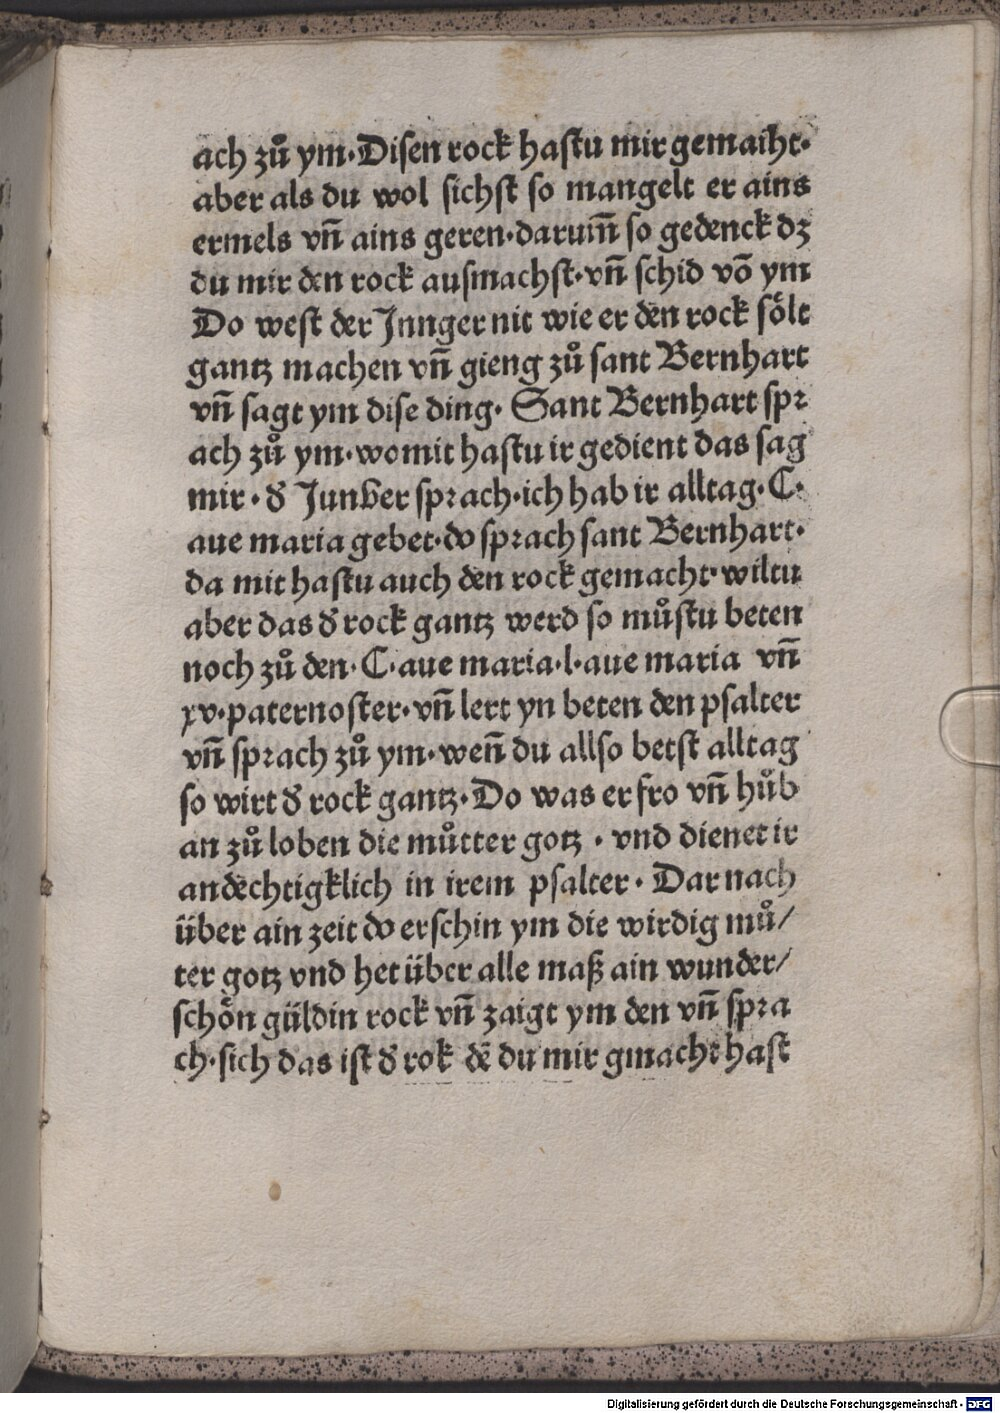 ach zuͦ ym·Disen rock hastu mir gemaiht·
aber als du wol sichst so mangelt er ains
ermels vn̄ ains geren·darum̄ so gedenck dz
du mir den rock ausmachst·vn̄ schid vō ym
Do west der Jnnger nit wie er den rock soͤlt
gantz machen vn̄ gieng zuͦ sant Bernhart
vn̄ sagt ym dise ding· Sant Bernhart spr
ach zuͦ ym·womit hastu ir gedient das sag
mir·đ Junker sprach·ich hab ir alltag·C·
aue maria gebet·do sprach sant Bernhart·
da mit hastu auch den rock gemacht·wiltu
aber das đ rock gantz werd so muͦstu beten
noch zuͦ den·C·aue maria·l·aue maria vn̄
xv·paternoster·vn̄ lert yn beten den psalter
vn̄ sprach zuͦ ym·wen̄ du allso betst alltag
so wirt đ rock gantz·Do was er fro vn̄ huͦb
an zuͦ loben die muͦtter gotz · vnd dienet ir
andechtigklich in irem psalter· Dar nach
über ain zeit do erschin ym die wirdig muͦ/
ter gotz vnd het über alle maß ain wunder/
schoͤn güldin rock vn̄ zaigt ym den vn̄ spra
ch·sich das ist đ rok dē du mir gmacht hast
Digitalisierung gefördert durch die Deutsche Forschungsgemeinschaft - DFG